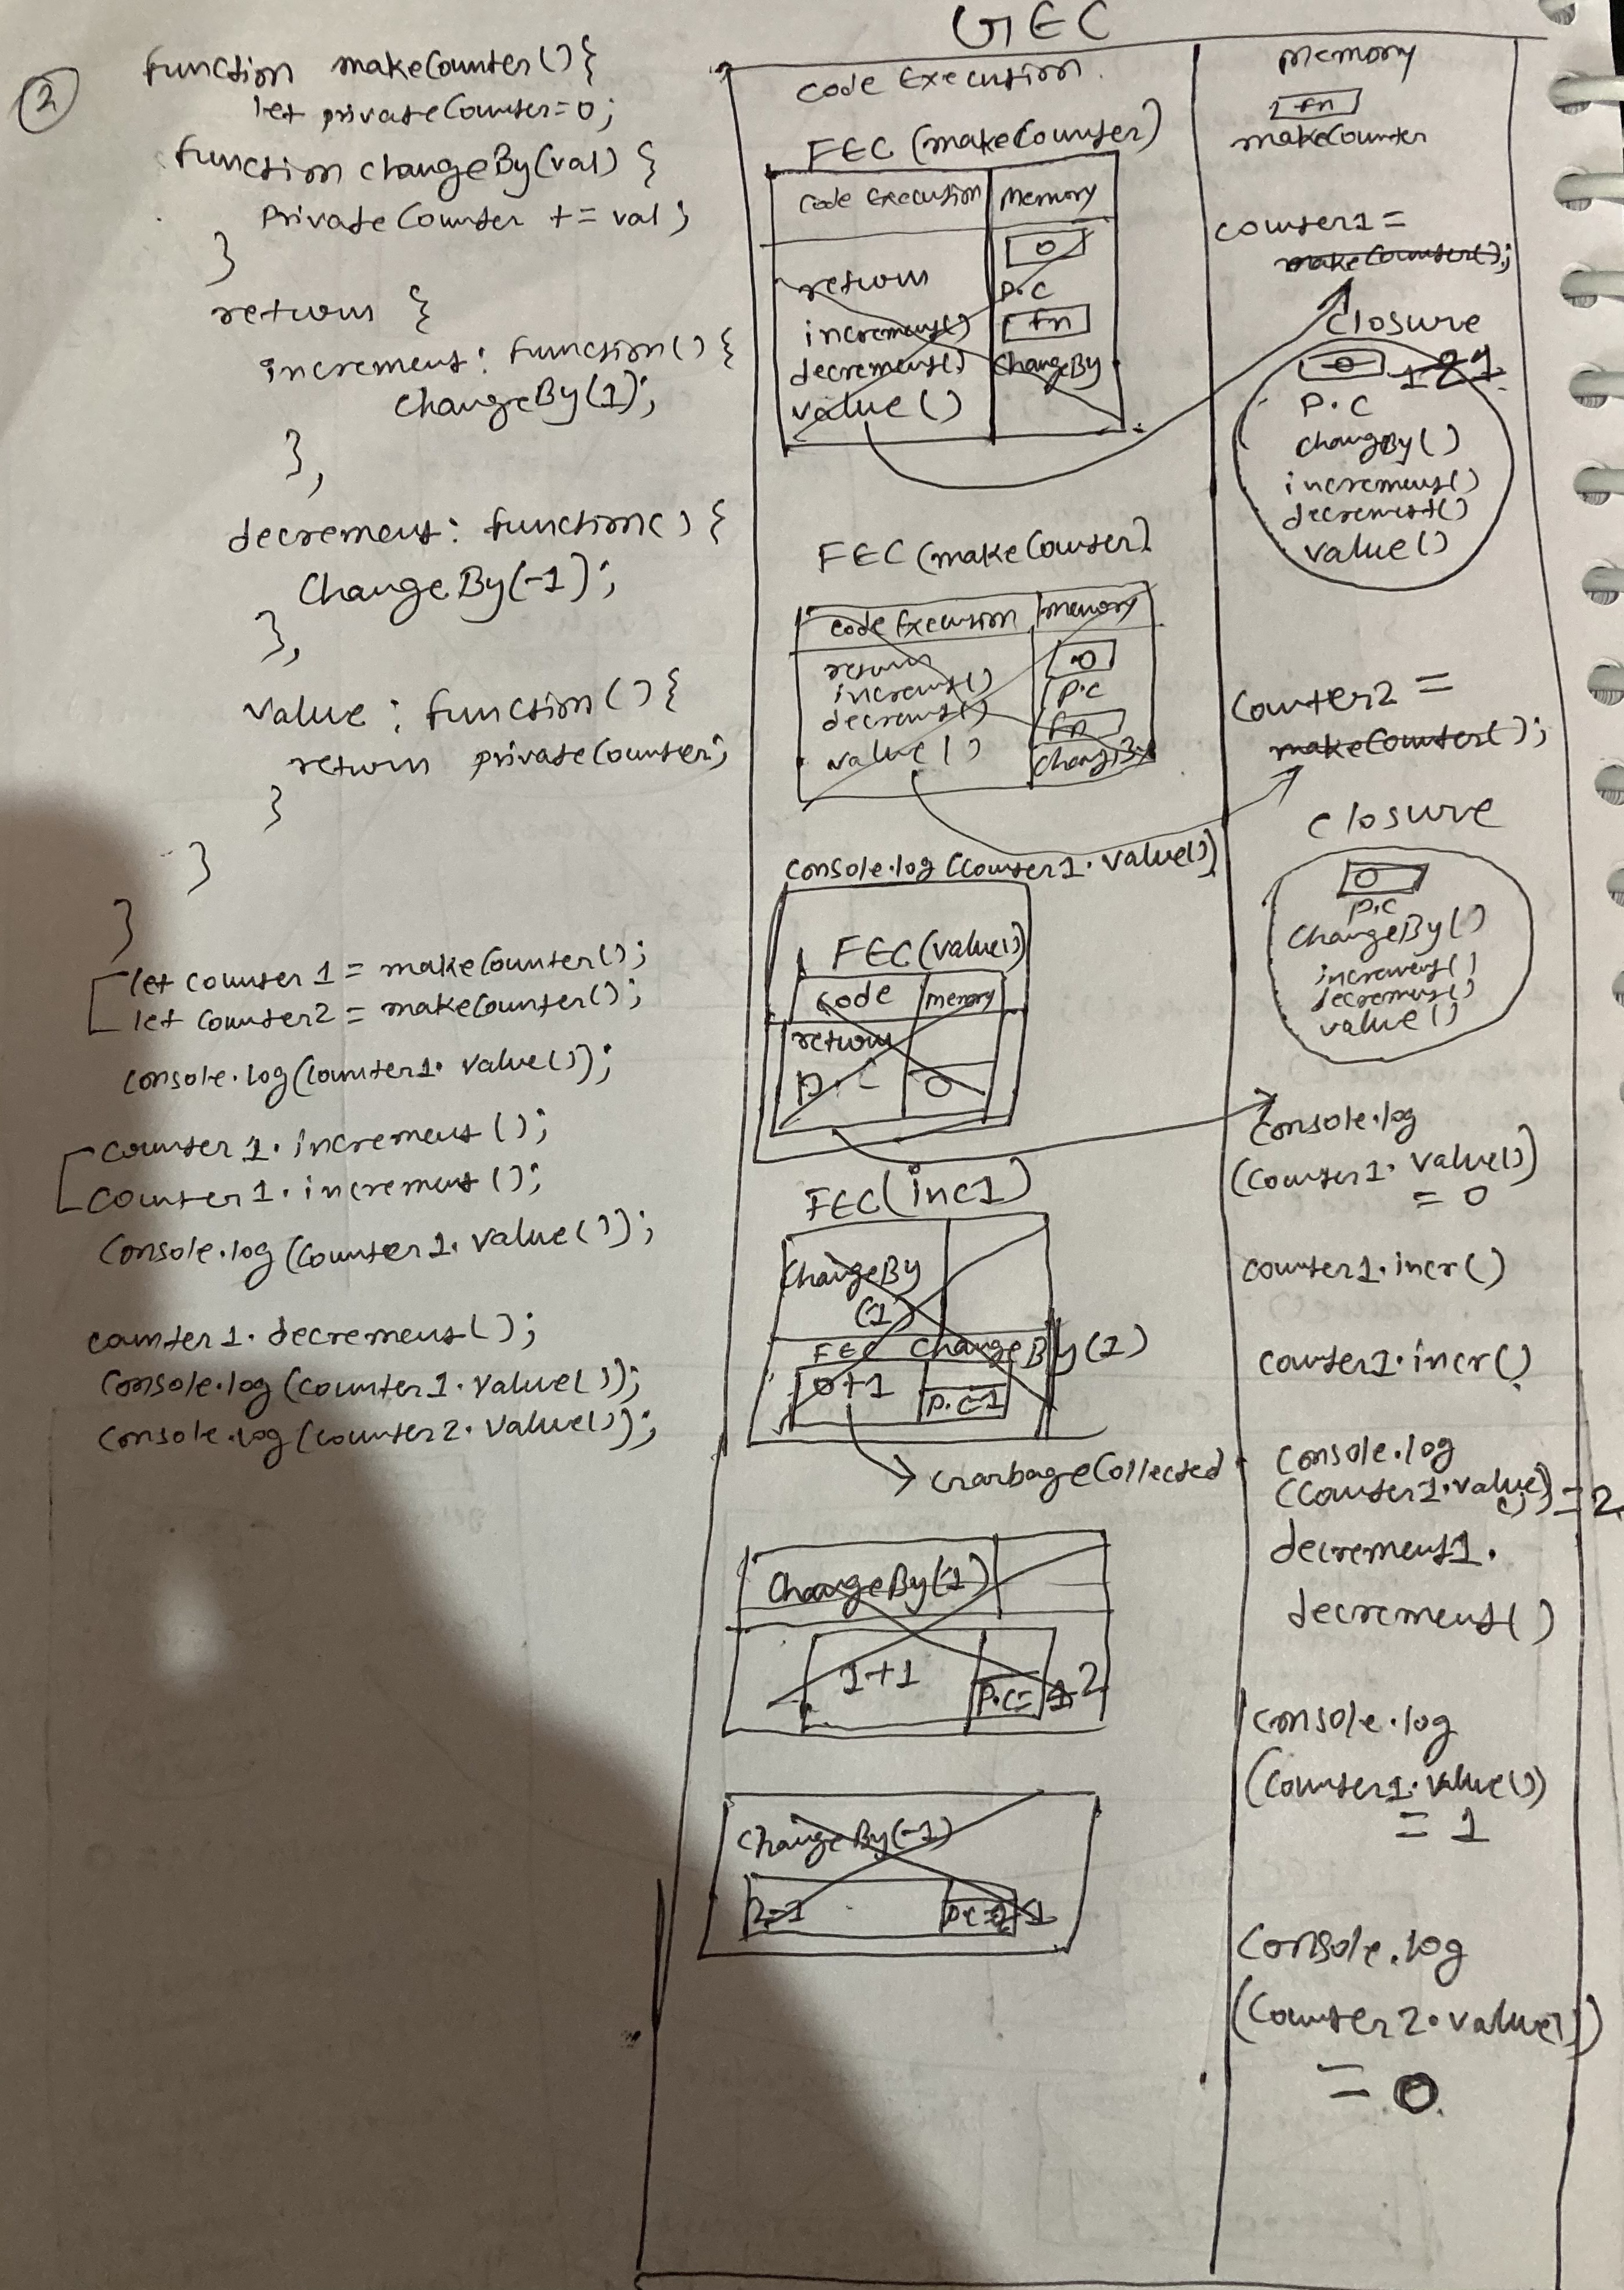 2
function makeCounter(){
let privateCounter=0;
function changeBy(val) {
PrivateCounter += val;
}
return {
increment: function(){
changeBy(1);
},
decrement: function(){
ChangeBy(-1);
},
value: function(){
return privateCounter;
}
}
}
let counter1 = makeCounter();
let counter2 = makeCounter();
console.log(counter1.value());
counter1.increment();
counter1.increment();
console.log(counter1.value());
counter1.decrement();
console.log(counter1.value());
console.log(counter2.value());
GEC
Code Execution.
FEC (makeCounter)
Code Execution Memory
0
return
P.C
increment() fn
decrement() ChangeBy
value()
FEC (makeCounter)
Code Execution Memory
return 0
increment() P.C
decrement() fn
value() ChangeBy
console.log(counter1.value())
FEC (value())
code memory
return
P.C 0
FEC (inc1)
ChangeBy
(1)
FEC ChangeBy(1)
0+1 P.C=1
GarbageCollected
ChangeBy(1)
1+1 P.C=1 2
ChangeBy(-1)
Memory
fn
makeCounter
counter1 =
makeCounter();
closure
0 1 2 1
P.C
changBy()
increment()
decrement()
value()
Counter2 =
makeCounter();
closure
0
P.C
ChangeBy()
increment()
decrement()
value()
Console.log
(Counter1.value())
= 0
counter1.incr()
counter1.incr()
Console.log
(Counter1.value()) = 2
decrement1.
decrement()
Console.log
(Counter1.value())
= 1
Console.log
(Counter2.value())
= 0